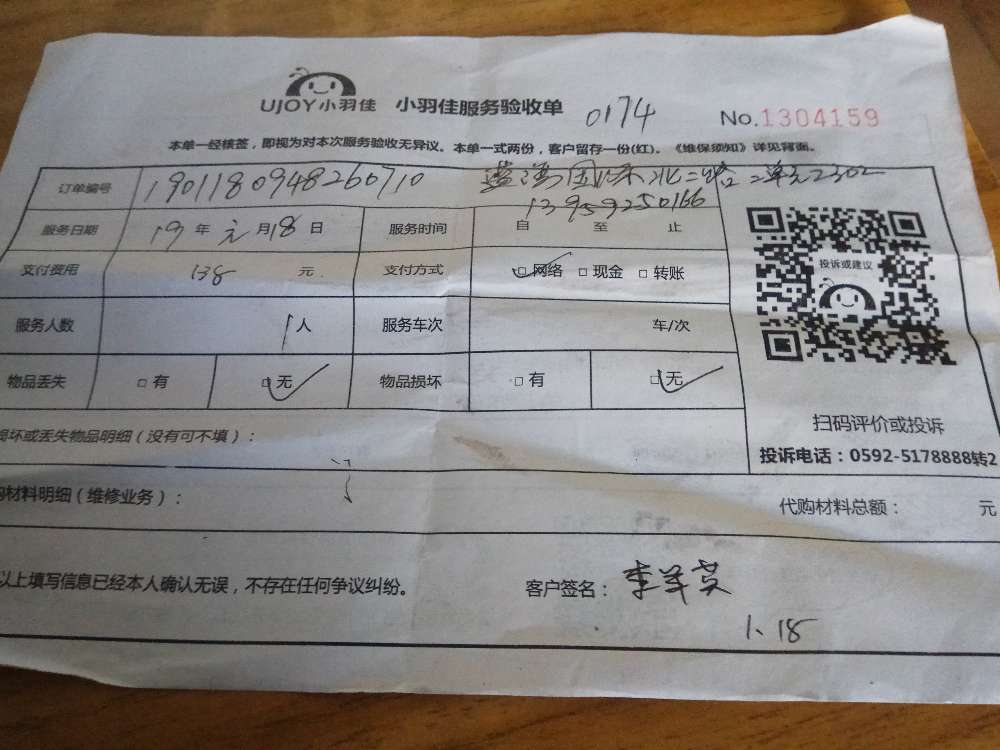 UJOY小羽佳 小羽佳服务验收单 0174 No.1304159
本单一经核签，即视为对本次服务验收无异议。本单一式两份，客户留存一份(红)。《维保须知》详见背面。
订单编号 1901180948260710 蓝湾国际北二塔二单元2302
13959250166
服务日期 19 年 元 月 18 日 服务时间 自 至 止
支付费用 138 元 支付方式 □网络 □现金 □转账
投诉或建议
服务人数 1人 服务车次 车/次
物品丢失 □有 □无 物品损坏 □有 □无
扫码评价或投诉
损坏或丢失物品明细（没有可不填）：
投诉电话：0592-5178888转2
购材料明细（维修业务）： 代购材料总额： 元
以上填写信息已经本人确认无误，不存在任何争议纠纷。 客户签名：李羊英
1、18